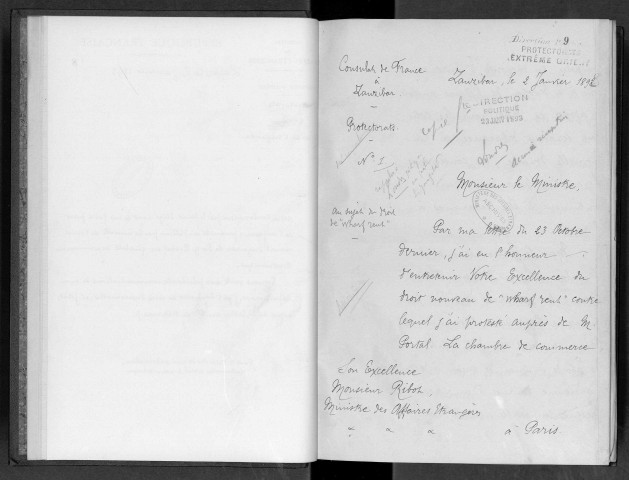 9
PROTECTORATS
EXTRÊME ORIENT
Consulat de France
à
Zanzibar
Zanzibar, le 2 Janvier 189
DIRECTION
POLITIQUE
Protectorats
copié
N° 2
Londres
Monsieur le Ministre,
au sujet du droit
de "wharf rent"
Par ma lettre du 23 Octobre
dernier, j'ai eu l'honneur
d'entretenir Votre Excellence du
droit nouveau de "wharf rent" contre
lequel j'ai protesté auprès de M.
Portal. La chambre de commerce
Son Excellence
Monsieur Ribot,
Ministre des Affaires Etrangères
à Paris.